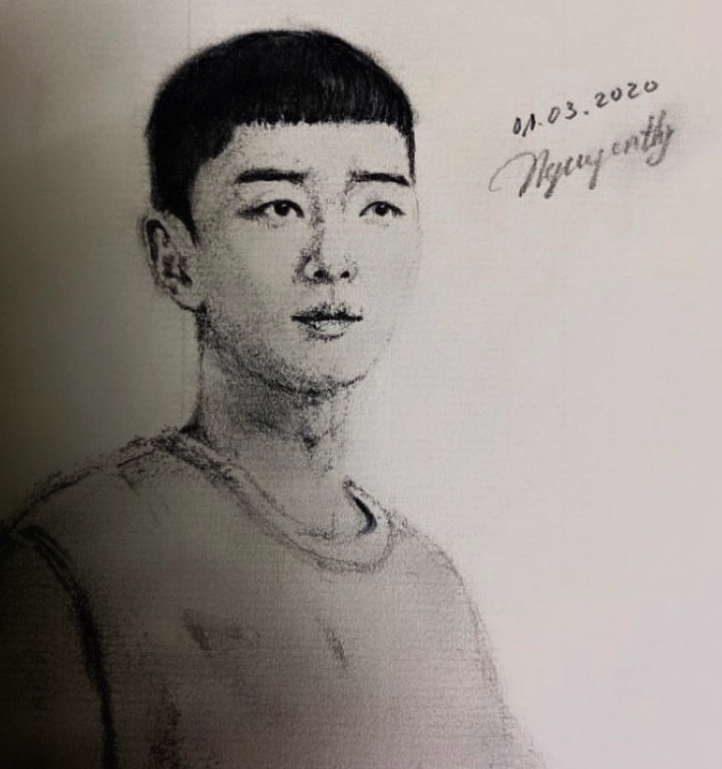 01.03.2020
Nguyenthy